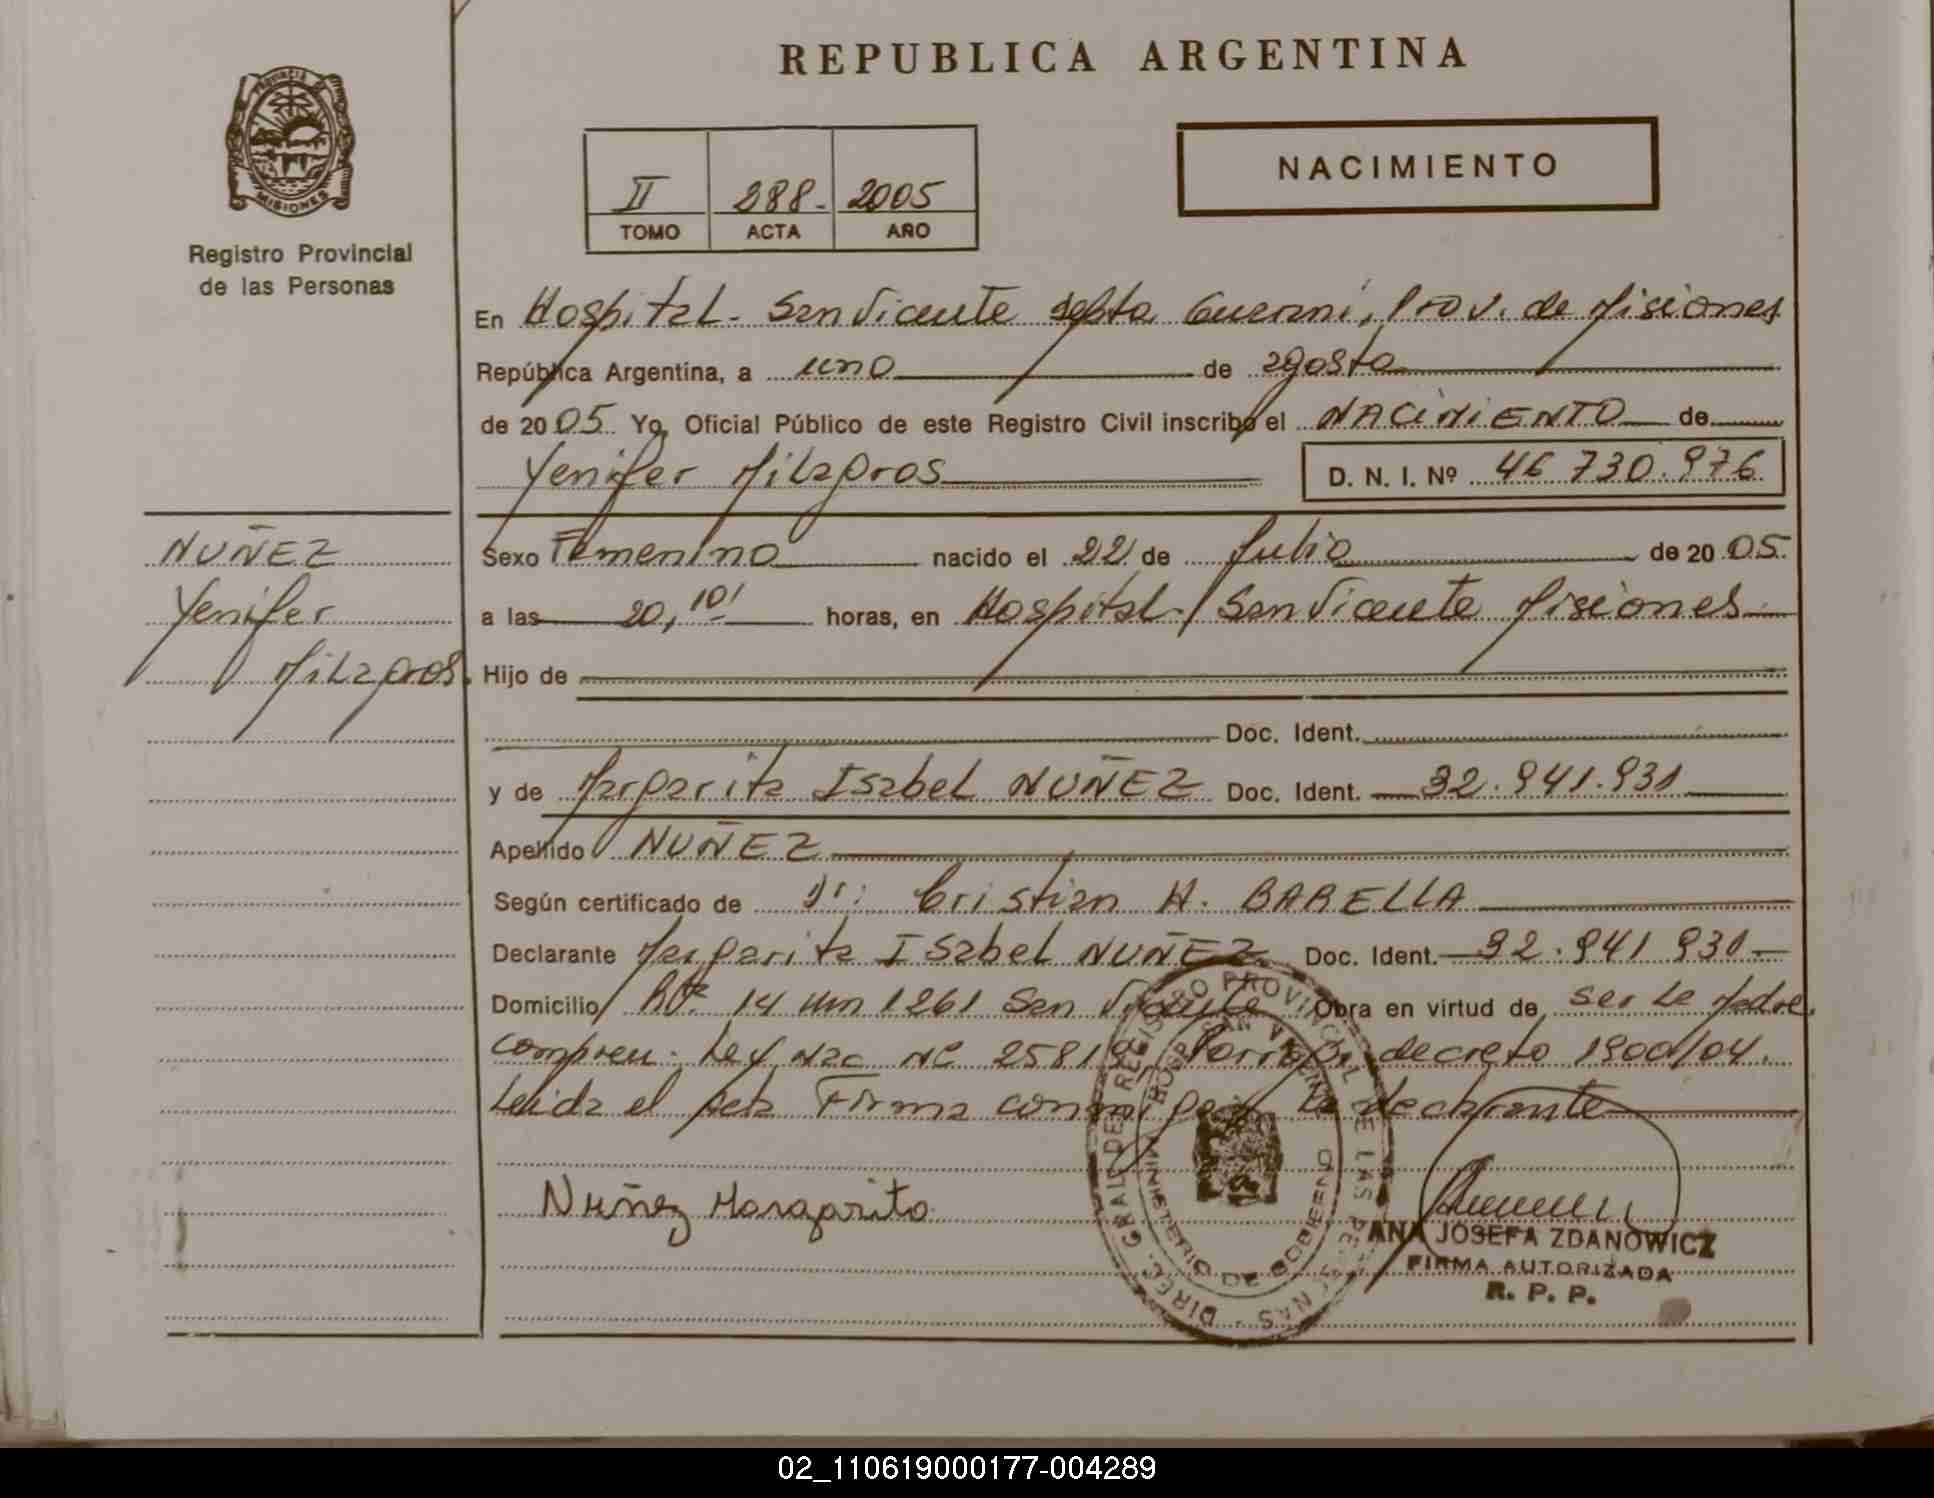 REPUBLICA ARGENTINA
PROVINCIA DE MISIONES
Registro Provincial
de las Personas
II 288- 2005
TOMO ACTA AÑO
NACIMIENTO
En Hospital - San Vicente depto Guaraní, Prov. de Misiones
República Argentina, a uno de agosto
de 2005 Yo, Oficial Público de este Registro Civil inscribo el NACIMIENTO de
Yenifer Milagros D. N. I. Nº 46 730.976
NUÑEZ
Yenifer
Milagros.
Sexo Femenino nacido el 22 de Julio de 2005.
a las 20,10' horas, en Hospital - San Vicente Misiones
Hijo de
Doc. Ident.
y de Margarita Isabel NUÑEZ Doc. Ident. 32.941.931
Apellido NUÑEZ
Según certificado de Dr: Cristian H. BARELLA
Declarante Margarita ISabel NUÑEZ Doc. Ident. 32.941 931
Domicilio Rta 14 km 1261 San Vicente Obra en virtud de ser la Madre
Ley Nac Nº 25819 decreto 1900/04.
Leida el acta Firma conmigo la declarante
Nuñez Margarita
DIREC. GRAL. DEL REGISTRO PROVINCIAL DE LAS PERSONAS
HOSP. SAN VICENTE
MINISTERIO DE GOBIERNO
ANA JOSEFA ZDANOWICZ
FIRMA AUTORIZADA
R. P. P.
02_110619000177-004289